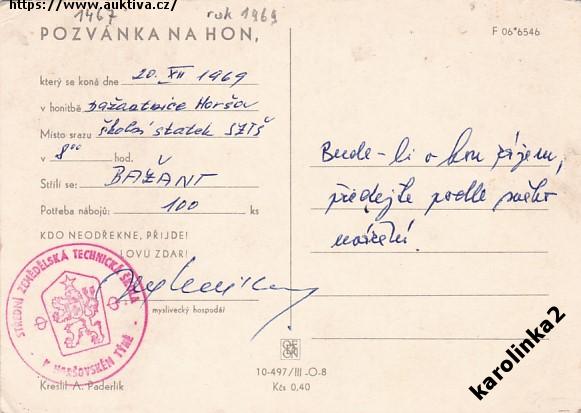 https://www.auktiva.cz/
1467 rok 1969
POZVÁNKA NA HON,
který se koná dne 20. XII 1969
v honitbě bažantnice Horšov
Místo srazu školní statek SZTŠ
v 8⁰⁰ hod.
Střílí se: BAŽANT
Potřeba nábojů: 100 ks
KDO NEODŘEKNE, PŘIJDE!
LOVU ZDAR!
myslivecký hospodář
STŘEDNÍ ZEMĚDĚLSKÁ TECHNICKÁ ŠKOLA
V HORŠOVSKÉM TÝNĚ
Kreslil A. Paderlík
F 06*6546
Bude-li o hon zájem,
předejte podle svého
uvážení.
10-497/III-O-8
Kčs 0,40
karolinka2